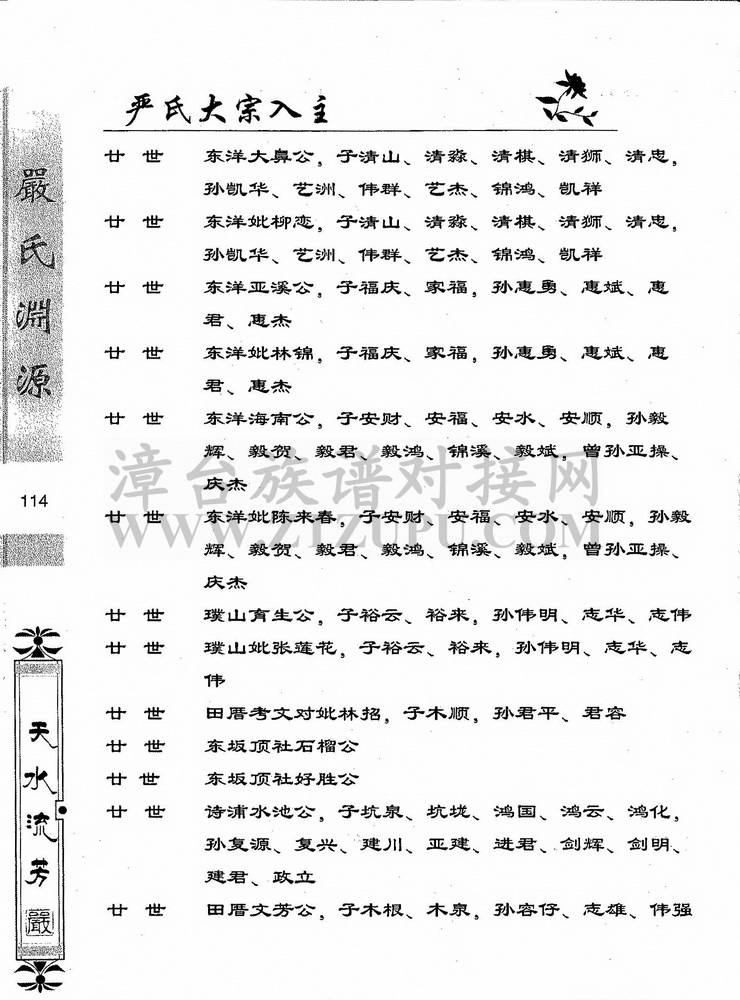 严氏大宗入主
廿世 东洋大鼻公，子清山、清淼、清棋、清狮、清忠，
孙凯华、艺洲、伟群、艺杰、锦鸿、凯祥
廿世 东洋妣柳恋，子清山、清淼、清棋、清狮、清忠，
孙凯华、艺洲、伟群、艺杰、锦鸿、凯祥
廿世 东洋亚溪公，子福庆、家福，孙惠勇、惠斌、惠
君、惠杰
廿世 东洋妣林锦，子福庆、家福，孙惠勇、惠斌、惠
君、惠杰
廿世 东洋海南公，子安财、安福、安水、安顺，孙毅
辉、毅贺、毅君、毅鸿、锦溪、毅斌，曾孙亚操、
庆杰
廿世 东洋妣陈来春，子安财、安福、安水、安顺，孙毅
辉、毅贺、毅君、毅鸿、锦溪、毅斌，曾孙亚操、
庆杰
廿世 璞山育生公，子裕云、裕来，孙伟明、志华、志伟
廿世 璞山妣张莲花，子裕云、裕来，孙伟明、志华、志
伟
廿世 田厝考文对妣林招，子木顺，孙君平、君容
廿世 东坂顶社石榴公
廿世 东坂顶社好胜公
廿世 诗浦水池公，子坑泉、坑垅、鸿国、鸿云、鸿化，
孙复源、复兴、建川、亚建、进君、剑辉、剑明、
建君、政立
廿世 田厝文芳公，子木根、木泉，孙容仔、志雄、伟强
嚴氏淵源
114
天水流芳
嚴
漳台族谱对接网
WWW.ZTZUPU.COM